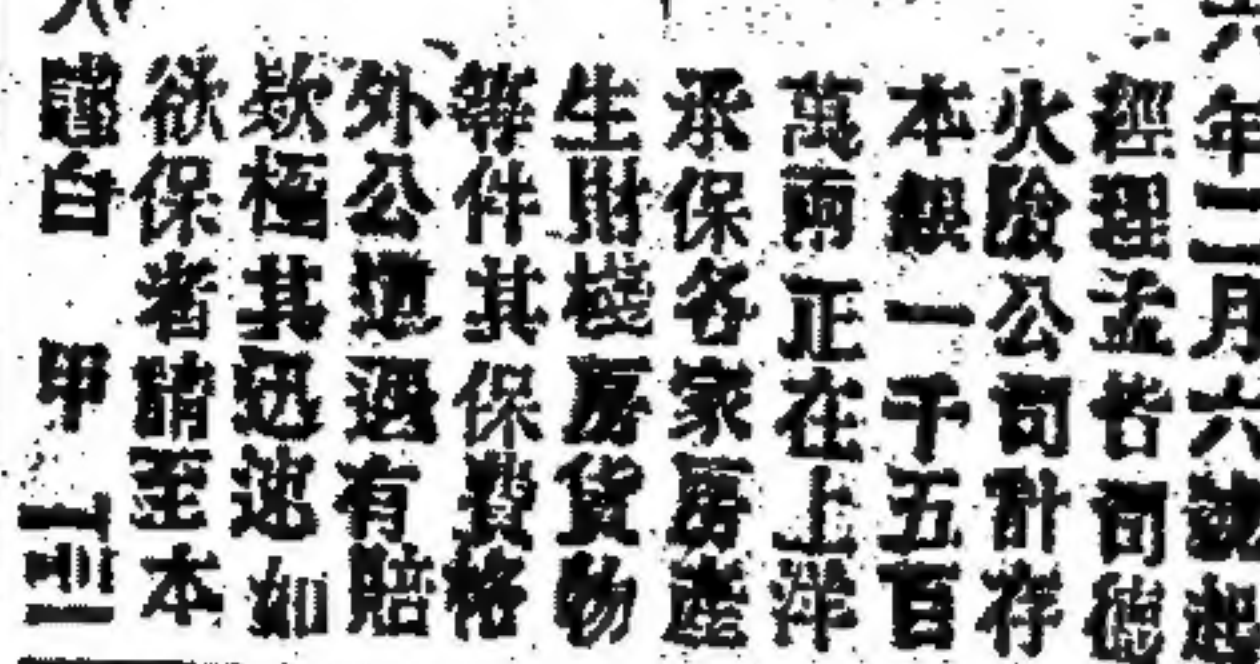 六年二月六號起
經理孟眥司德
火險公司計存
本銀一千五百
萬兩正在上洋
承保各家房產
生財棧房貨物
等件其保費格
外公道遇有賠
欵極其迅速如
欲保者請至本
謹白 甲 二三